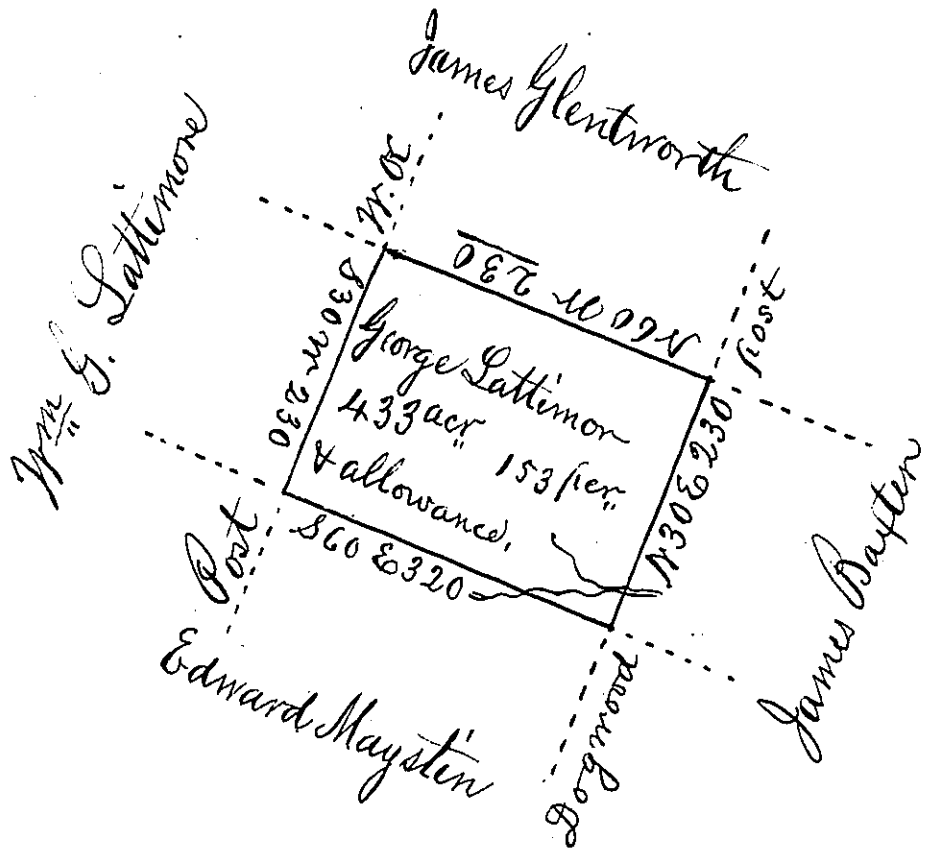 James Glentworth
Wm G. Lattimore
W. OK
N60 W 230
Post
S30 W 230
George Lattimor
433 acr 153 per
& allowance.
N30 E 230
S60 E 320
Post
James Baxten
Edward Maysten
Dogwood